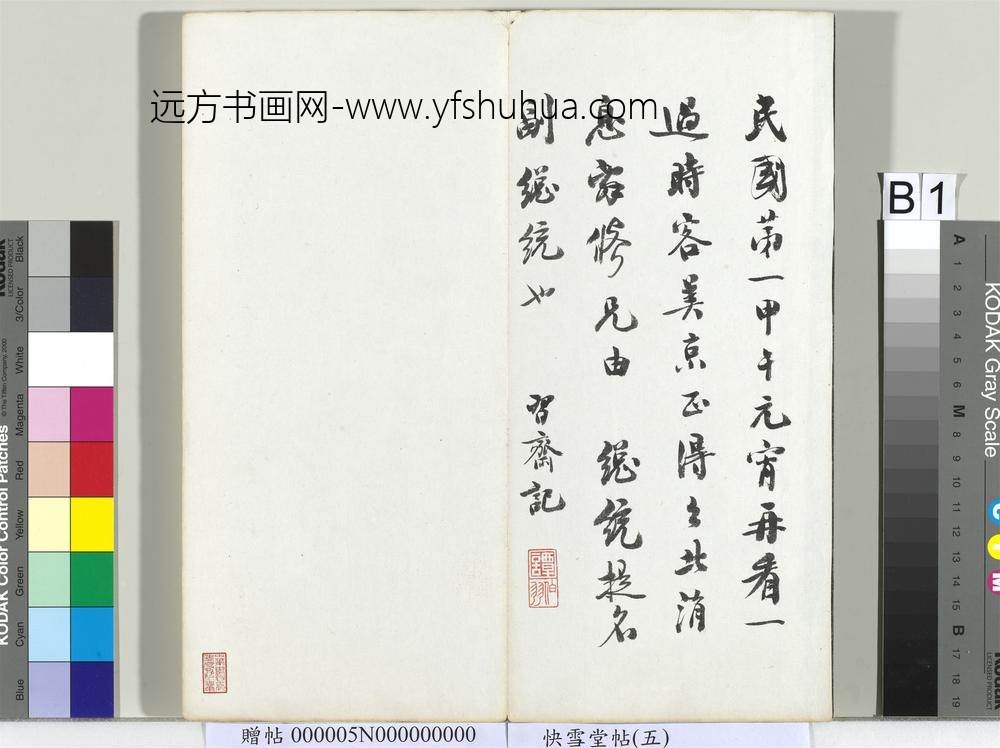 远方书画网-www.yfshuhua.com
民國第一甲午元宵再看一
過時客美京正得台北消
息辭修兄由 總統提名
副總統也 習齋記
譚伯羽
B 1
贈帖 000005N000000000
快雪堂帖(五)
KODAK Color Control Patches
Kodak
LICENSED PRODUCT
© The Tiffen Company, 2000
Blue
Cyan
Green
Yellow
Red
Magenta
White
3/Color
Black
KODAK Gray Scale
A 1 2 3 4 5 6 M 8 9 10 11 12 13 14 15 B 17 18 19
C
Y
M
Kodak
LICENSED PRODUCT